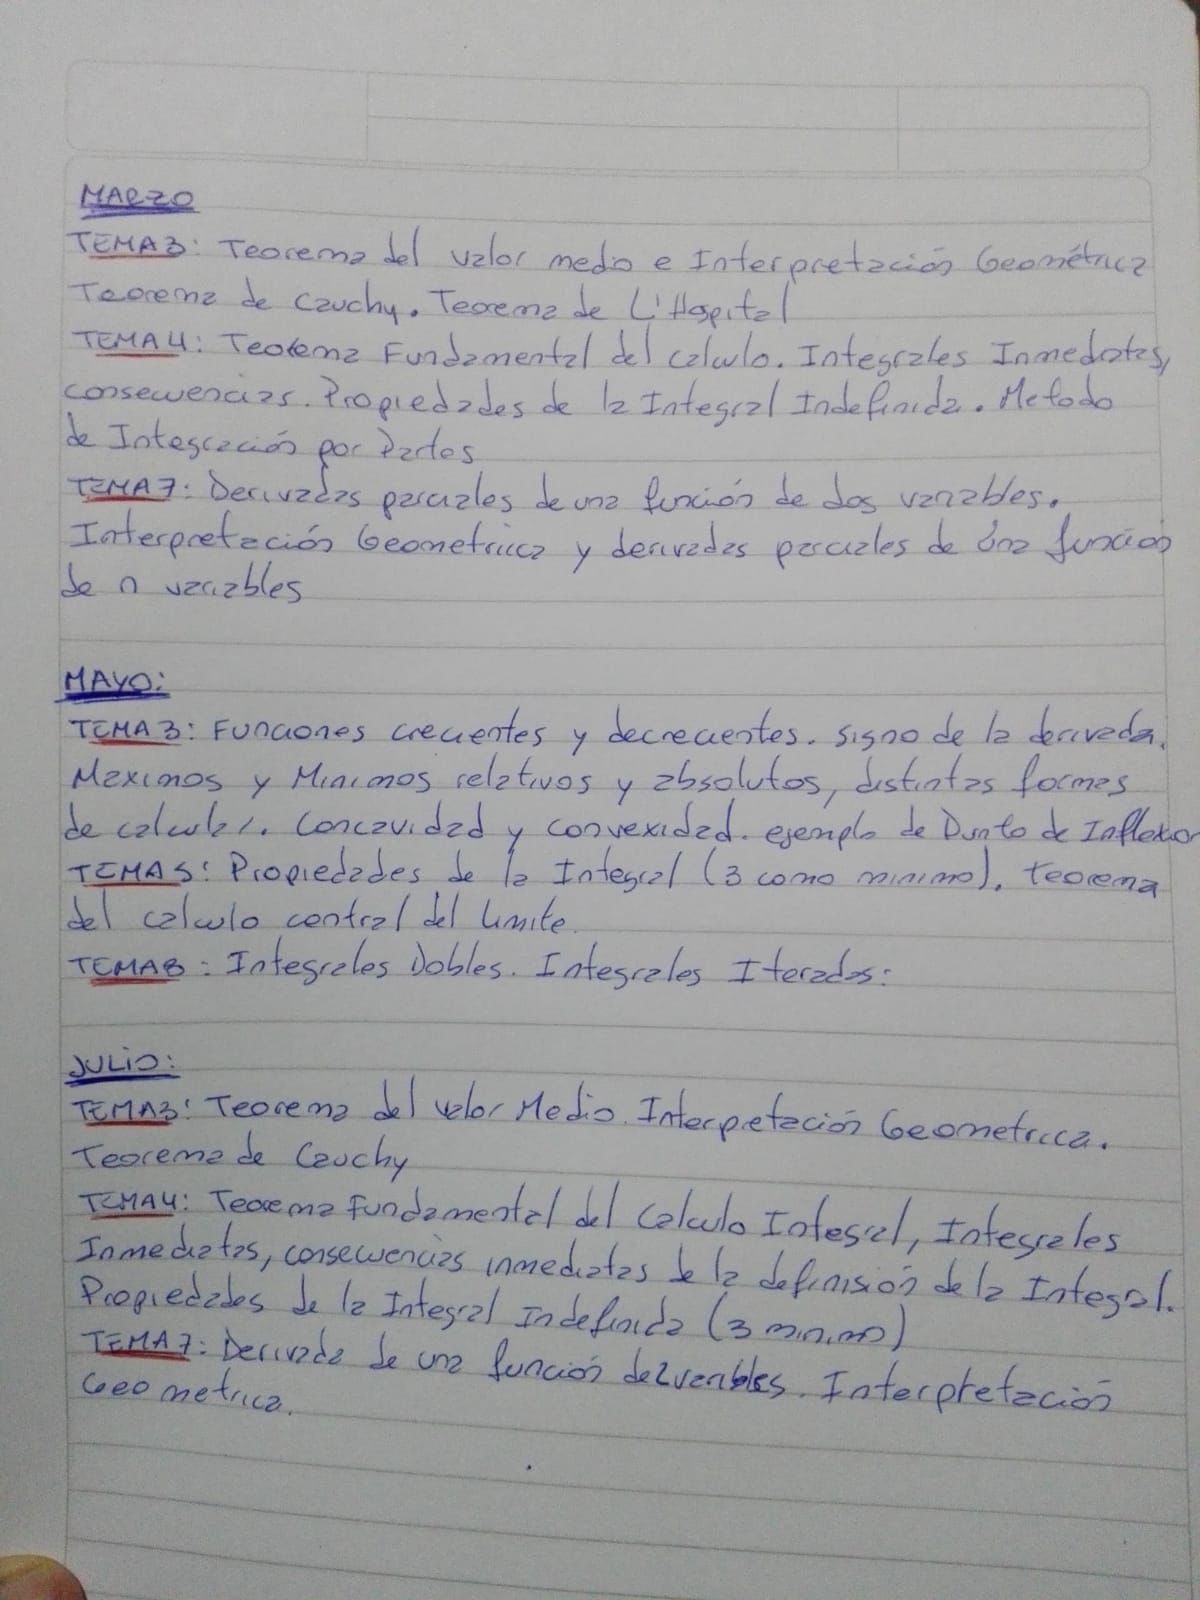 MARZO
TEMA3: Teorema del valor medio e Interpretación Geométrica
Teorema de Cauchy. Teorema de L'Hospital
TEMA4: Teorema Fundamental del calculo. Integrales Inmediatas,
consecuencias. Propiedades de la Integral Indefinida. Metodo
de Integración por Partes
TEMA7: Derivadas parciales de una función de dos variables.
Interpretación Geometrica y derivadas parciales de una función
de n variables
MAYO:
TEMA3: Funciones crecientes y decrecientes. signo de la derivada.
Maximos y Minimos relativos y absolutos, distintas formas
de calcular. Concavidad y convexidad. ejemplo de Punto de Inflexion
TEMA5: Propiedades de la Integral (3 como minimo). teorema
del calculo central del limite.
TEMA8: Integrales Dobles. Integrales Iteradas:
JULIO:
TEMA3: Teorema del valor Medio. Interpretación Geometrica.
Teorema de Cauchy
TEMA4: Teorema Fundamental del Calculo Integral, Integrales
Inmediatas, consecuencias inmediatas de la definisión de la Integral.
Propiedades de la Integral Indefinida (3 minimo)
TEMA7: Derivada de una función de 2 variables. Interpretación
Geometrica.